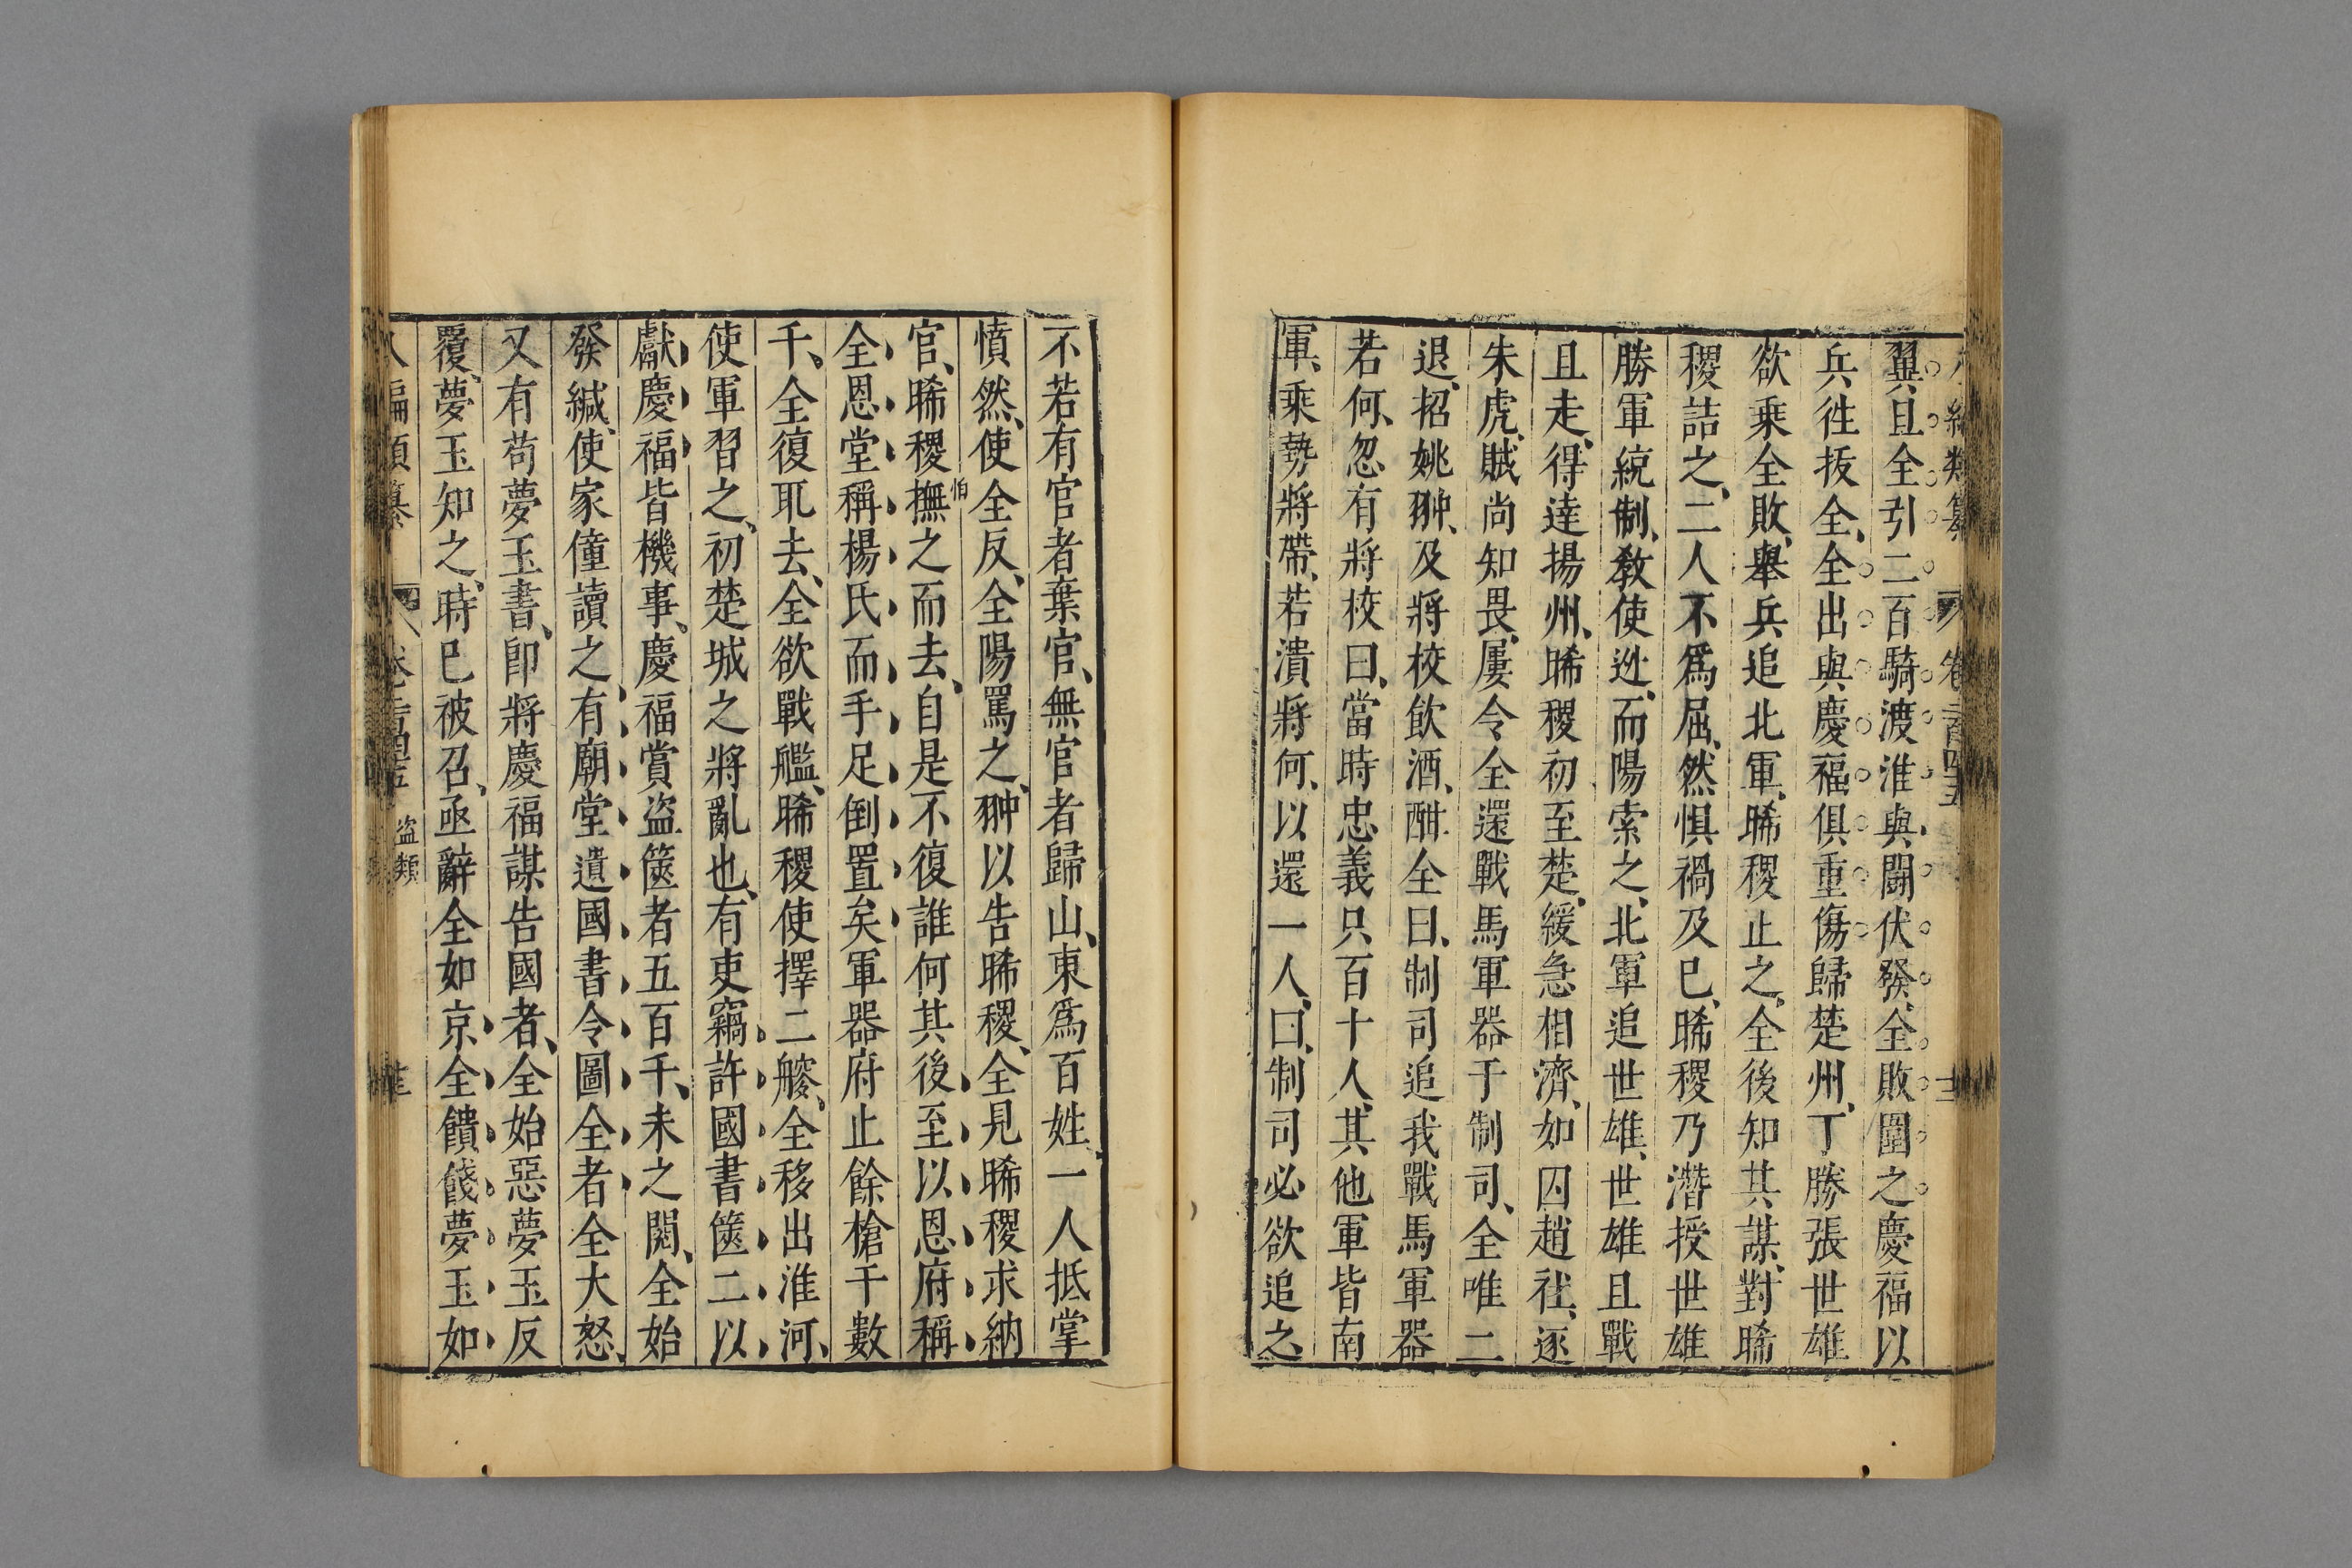 編類纂 卷二百四十五
翼且全引二百騎渡淮與鬬伏發全敗圍之慶福以
兵徃㧞全全出與慶福俱重傷歸楚州丁勝張世雄
欲乗全敗舉兵追北軍晞稷止之全後知其謀對晞
稷詰之二人不爲屈然惧禍及巳晞稷乃潛授世雄
勝軍統制敎使迯而陽索之北軍追世雄世雄且戰
且走得達揚州晞稷初至楚緩急相濟如囚趙社逐
朱虎賊尚知畏屢令全還戰馬軍器于制司全唯二
退招姚翀及將校飲酒酣全曰制司追我戰馬軍器
若何忽有將校曰當時忠義只百十人其他軍皆南
軍乗勢將帶若潰將何以還一人曰制司必欲追之
不若有官者棄官無官者歸山東爲百姓一人抵掌
憤然使全反全陽罵之翀以告晞稷全見晞稷求納
官晞稷怕撫之而去自是不復誰何其後至以恩府稱
全恩堂稱楊氏而手足倒置矣軍器府止餘槍千數
千全復取去全欲戰艦晞稷使擇二艘全移出淮河
使軍習之初楚城之將亂也有吏竊許國書篋二以
獻慶福皆機事慶福賞盗篋者五百千未之閱全始
發緘使家僮讀之有廟堂遺國書令圖全者全大怒
又有苟夢玉書卽將慶福謀告國者全始惡夢玉反
覆夢玉知之時巳被召亟辭全如京全饋餞夢玉如
八編類纂 卷二百四十五 盗類